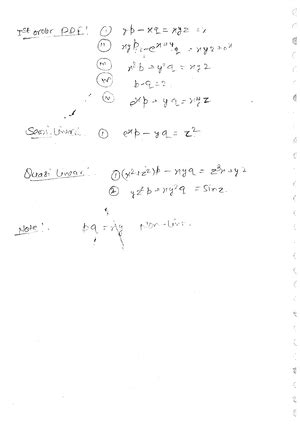 Ist order PDE: ① yp - xq = xyz
② xyp - e^x+y q = xyz + x²
③ x²p + y²q = xyz
p - q = z
e^x p + yq = xyz
Semi Linear: ① e^x p - yq = z²
Quasi Linear: ① (x²+z²)p - xyq = z³x+y²
② yz²p + xy²q = Sinz
Note: pq = xy Non-Line